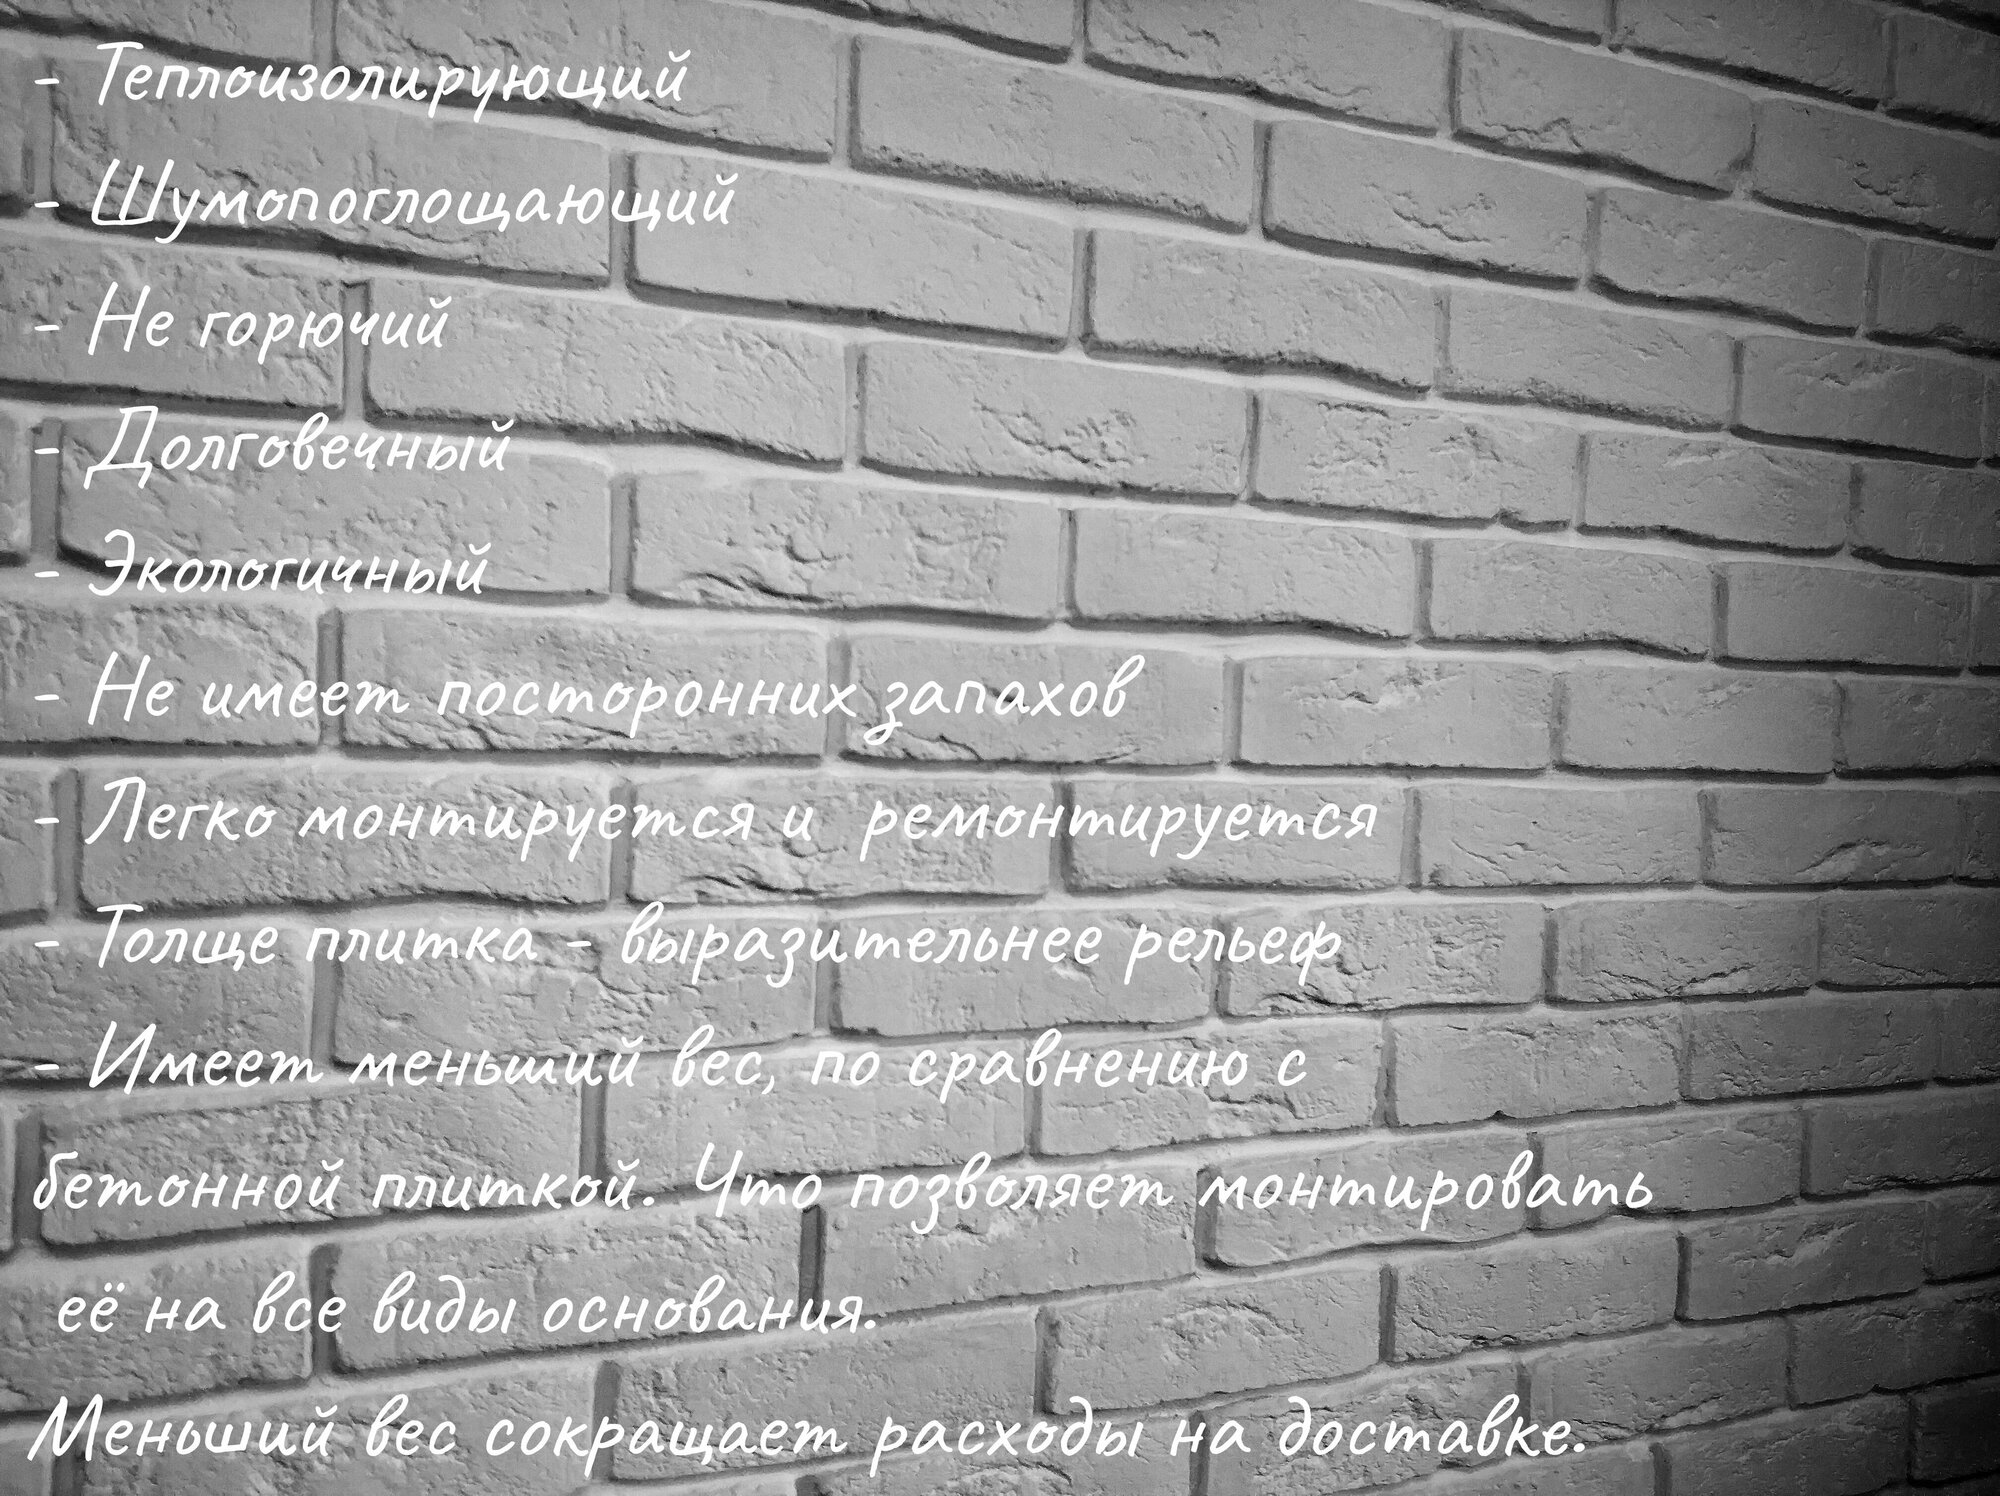 - Теплоизолирующий
- Шумопоглощающий
- Не горючий
- Долговечный
- Экологичный
- Не имеет посторонних запахов
- Легко монтируется и ремонтируется
- Толще плитка - выразительнее рельеф
- Имеет меньший вес, по сравнению с
бетонной плиткой. Что позволяет монтировать
её на все виды основания.
Меньший вес сокращает расходы на доставке.